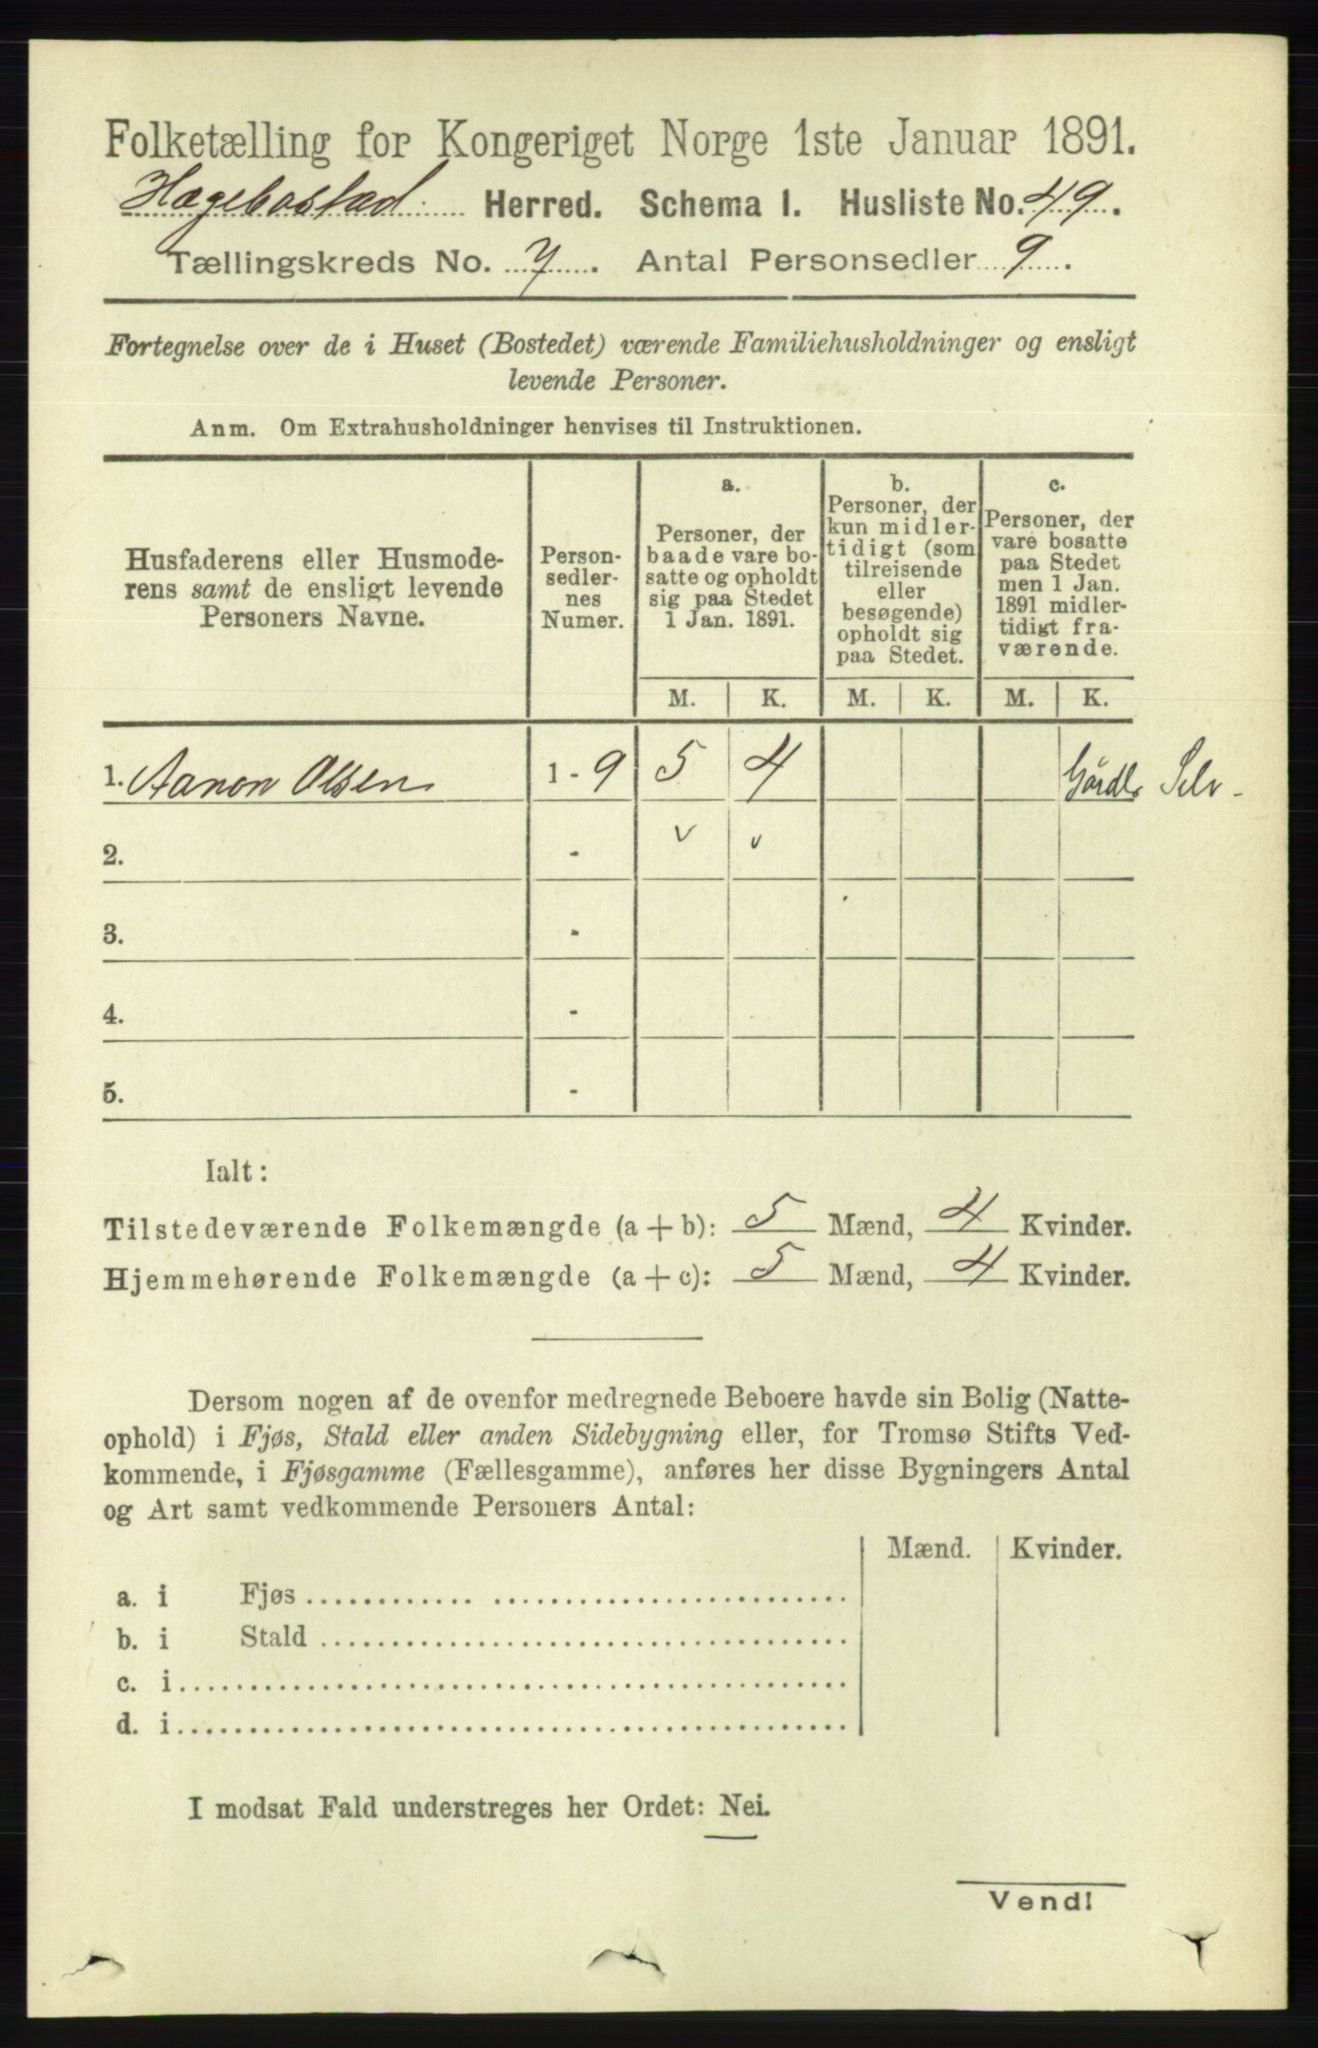 Folketælling for Kongeriget Norge 1ste Januar 1891.
Hægebostad Herred. Schema I. Husliste No. 49.
Tællingskreds No. 7. Antal Personsedler 9.
Fortegnelse over de i Huset (Bostedet) værende Familiehusholdninger og ensligt
levende Personer.
Anm. Om Extrahusholdninger henvises til Instruktionen.
Husfaderens eller Husmode-
rens samt de ensligt levende
Personers Navne.
Person-
sedler-
nes
Numer.
a.
Personer, der
baade vare bo-
satte og opholdt
sig paa Stedet
1 Jan. 1891.
b.
Personer, der
kun midler-
tidigt (som
tilreisende
eller
besøgende)
opholdt sig
paa Stedet.
c.
Personer, der
vare bosatte
paa Stedet
men 1 Jan.
1891 midler-
tidigt fra-
værende.
M. K. M. K. M. K.
1. Aanon Olsen 1 - 9 5 4 Selv -
2. - v v
3. -
4. -
5. -
Ialt:
Tilstedeværende Folkemængde (a + b): 5 Mænd, 4 Kvinder.
Hjemmehørende Folkemængde (a + c): 5 Mænd, 4 Kvinder.
Dersom nogen af de ovenfor medregnede Beboere havde sin Bolig (Natte-
ophold) i Fjøs, Stald eller anden Sidebygning eller, for Tromsø Stifts Ved-
kommende, i Fjøsgamme (Fællesgamme), anføres her disse Bygningers Antal
og Art samt vedkommende Personers Antal:
Mænd. Kvinder.
a. i Fjøs
b. i Stald
c. i
d. i
I modsat Fald understreges her Ordet: Nei.
Vend!